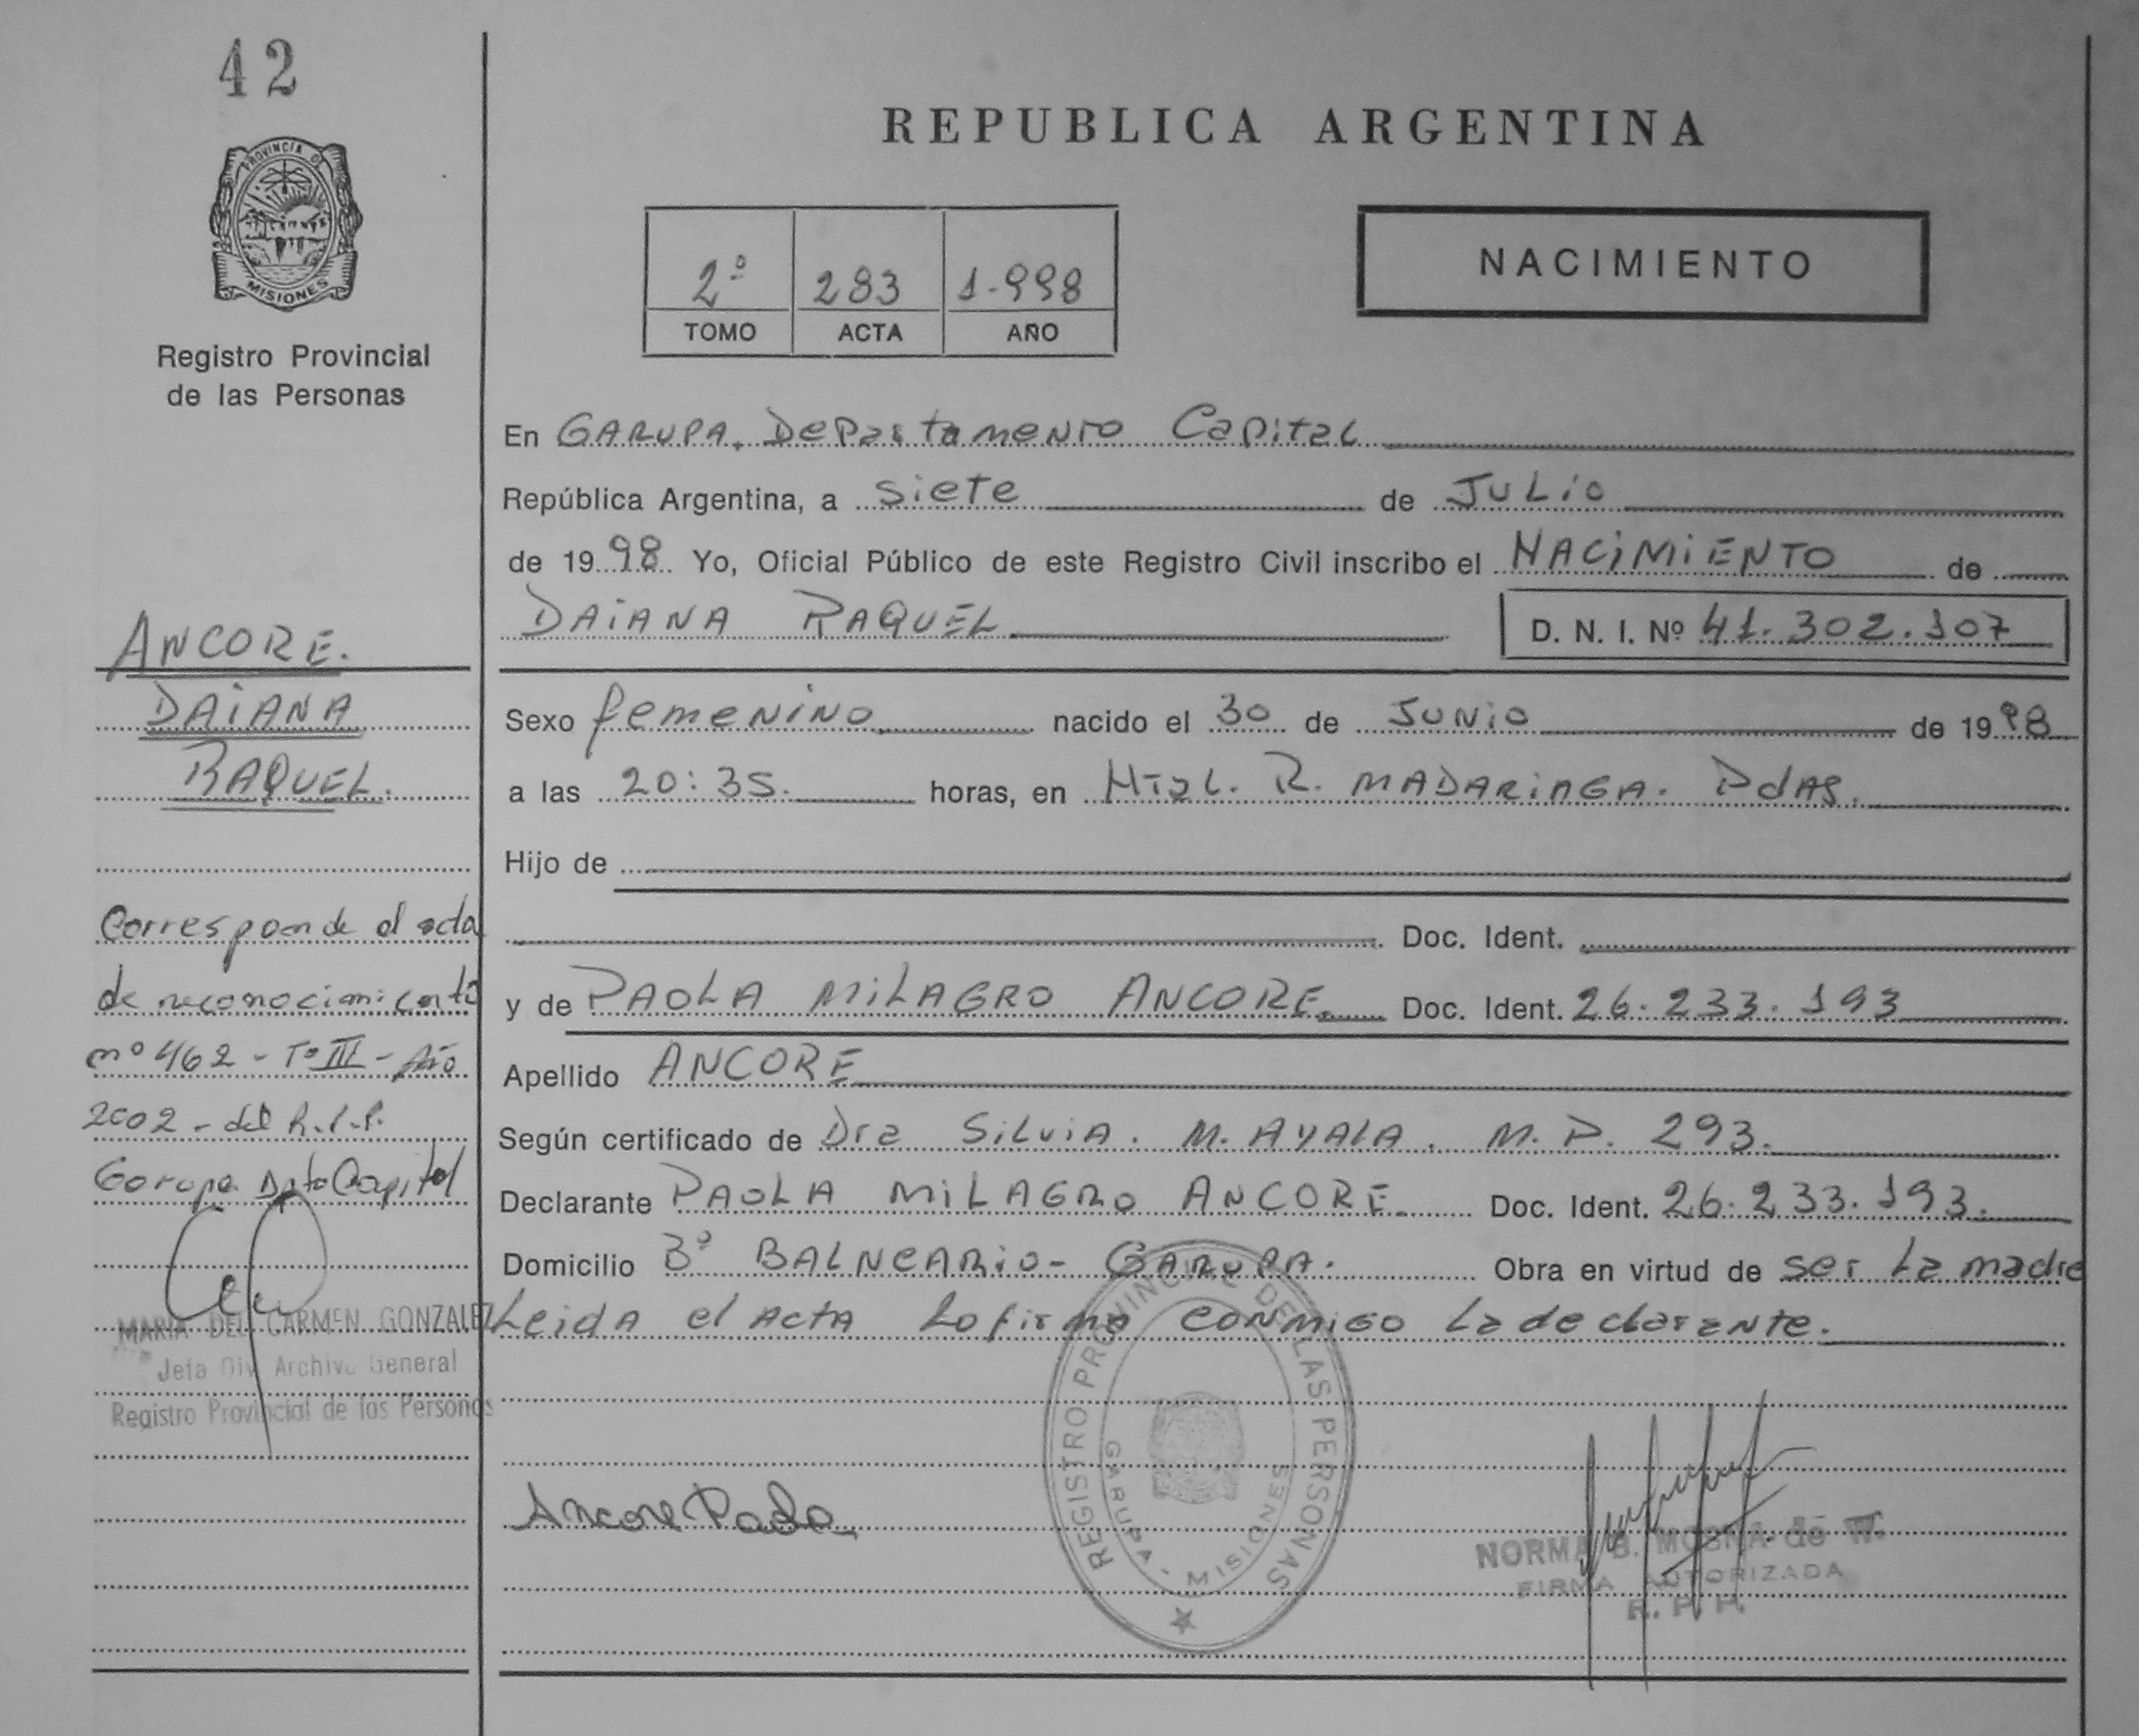 42
PROVINCIA D
MISIONES
Registro Provincial
de las Personas
ANCORE.
DAIANA
RAQUEL.
Corresponde al acta
de reconocimiento
nº 462 - Tº III - Año
2002 - del R.P.P.
Garupa Dpto Capital
MARIA DEL CARMEN GONZALEZ
Jefa Div Archivo General
Registro Provincial de las Personas
REPUBLICA ARGENTINA
2º 283 1.998
TOMO ACTA AÑO
NACIMIENTO
En GARUPA. Departamento Capital
República Argentina, a siete de JULIO
de 1998 Yo, Oficial Público de este Registro Civil inscribo el NACIMIENTO de
DAIANA RAQUEL D. N. I. Nº 41.302.107
Sexo femenino nacido el 30 de JUNIO de 1998
a las 20:35. horas, en Htal. R. MADARIAGA. PdAs.
Hijo de
Doc. Ident.
y de PAOLA MILAGRO ANCORE. Doc. Ident. 26.233.193
Apellido ANCORE
Según certificado de Dra SILVIA. M. AYALA. M.P. 293.
Declarante PAOLA MILAGRO ANCORE. Doc. Ident. 26.233.193.
Domicilio Bº BALNEARIO- GARUPA. Obra en virtud de ser La madre
Leida el ACTA La firma conmigo La declarante.
Ancore Paola
REGISTRO PROVINCIAL DE LAS PERSONAS
GARUPA - MISIONES
NORMA B. MOSNA de W.
FIRMA AUTORIZADA
R. P. P.